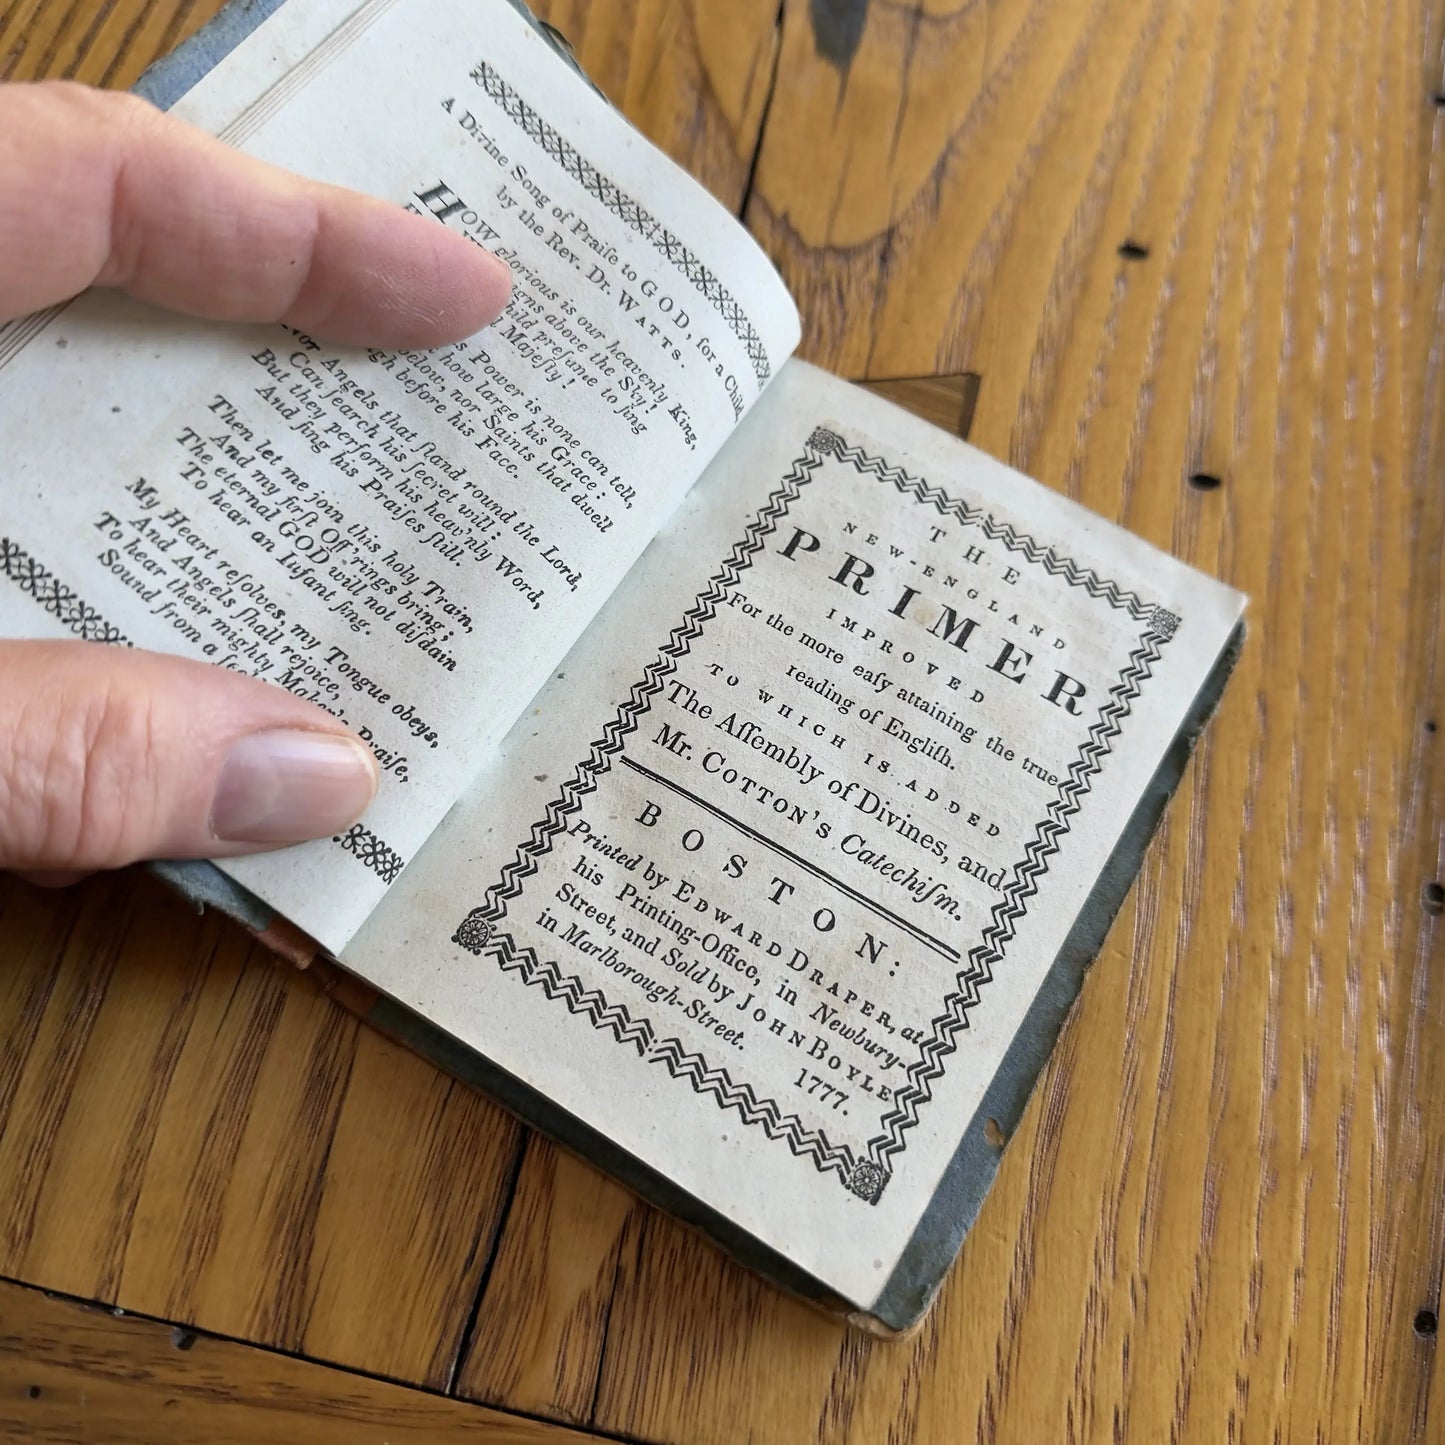 A Divine Song of Praiſe to GOD, for a Child,
by the Rev. Dr. WATTS.
HOW glorious is our heavenly King,
reigns above the Sky!
Child preſume to ſing
Majeſty!
his Power is none can tell,
how large his Grace:
below, nor Saints that dwell
before his Face.
Nor Angels that ſtand round the Lord,
Can ſearch his ſecret will:
But they perform his heav'nly Word,
And ſing his Praiſes ſtill.
Then let me join this holy Train,
And my firſt Off'rings bring;
The eternal GOD will not diſdain
To hear an Infant ſing.
My Heart reſolves, my Tongue obeys,
And Angels ſhall rejoice,
To hear their mighty Maker's Praiſe,
Sound from a
THE
NEW-ENGLAND
PRIMER
IMPROVED
For the more eaſy attaining the true
reading of Engliſh.
TO WHICH IS ADDED
The Aſſembly of Divines, and
Mr. COTTON'S Catechiſm.
BOSTON:
Printed by EDWARD DRAPER, at
his Printing-Office, in Newbury-
Street, and Sold by JOHN BOYLE
in Marlborough-Street. 1777.